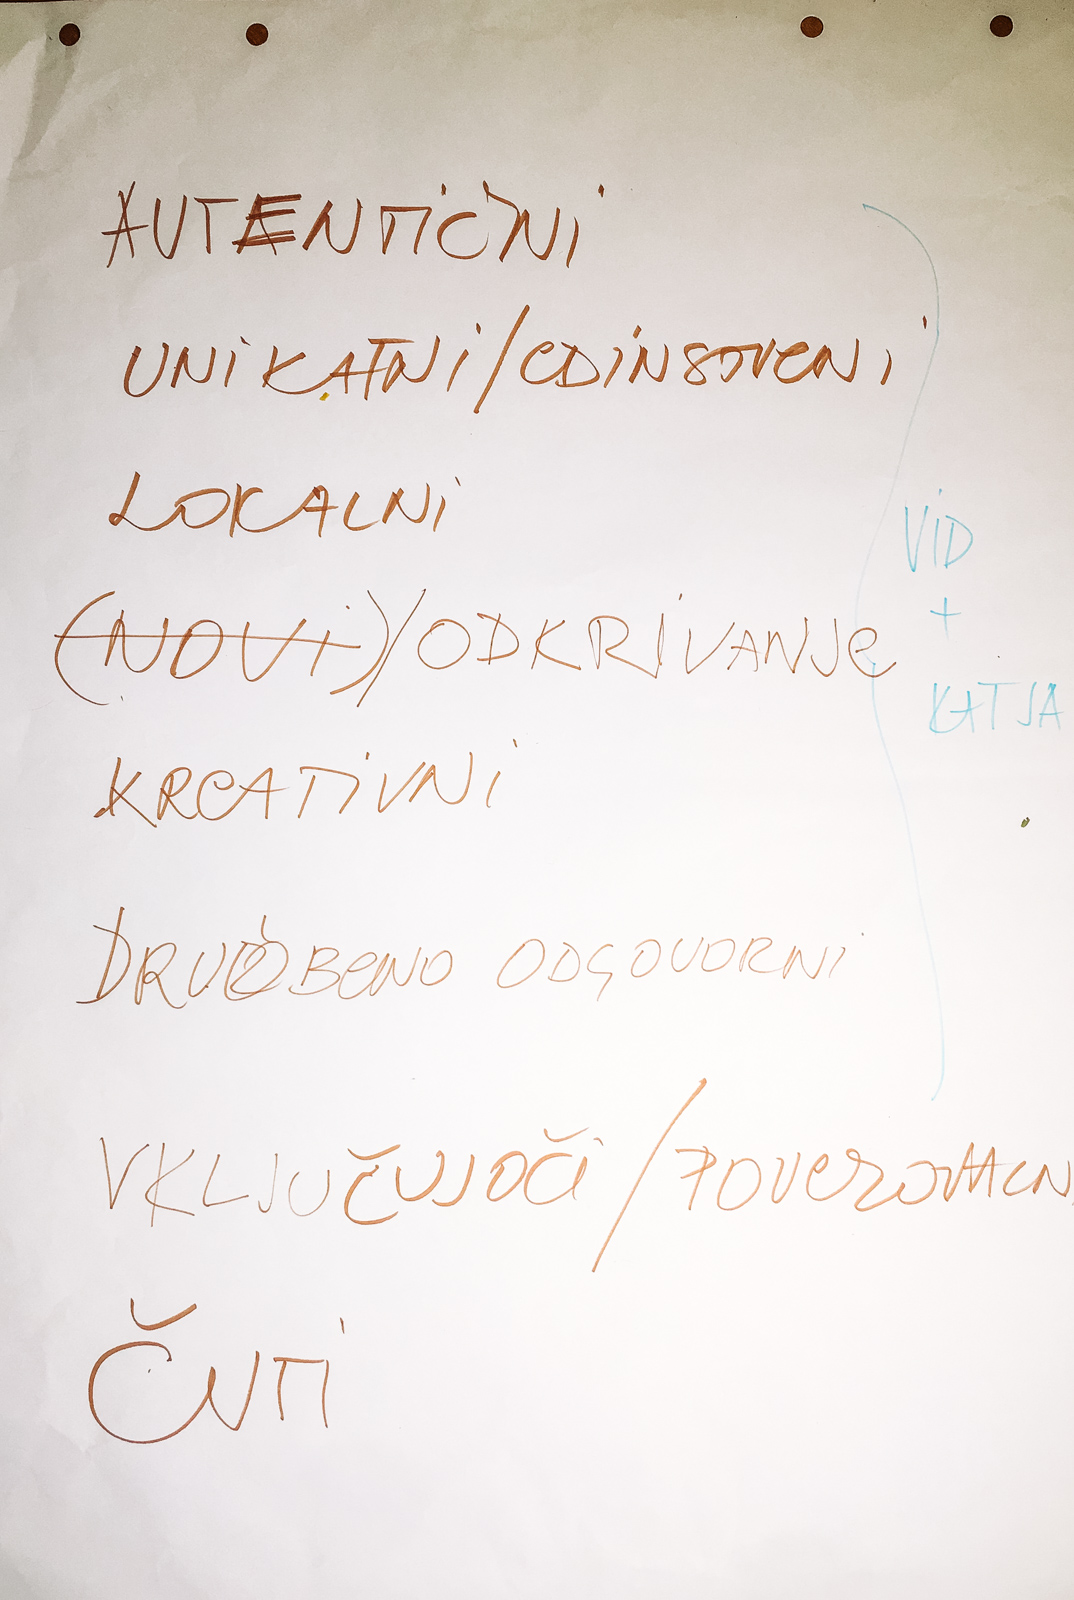 AUTENTIČNI
UNIKATNI/EDINSTVENI
LOKALNI
(NOVI)/ODKRIVANJE
KREATIVNI
DRUŽBENO ODGOVORNI
VKLJUČUJOČI/POVEZOVALN
VID
+
KATJA